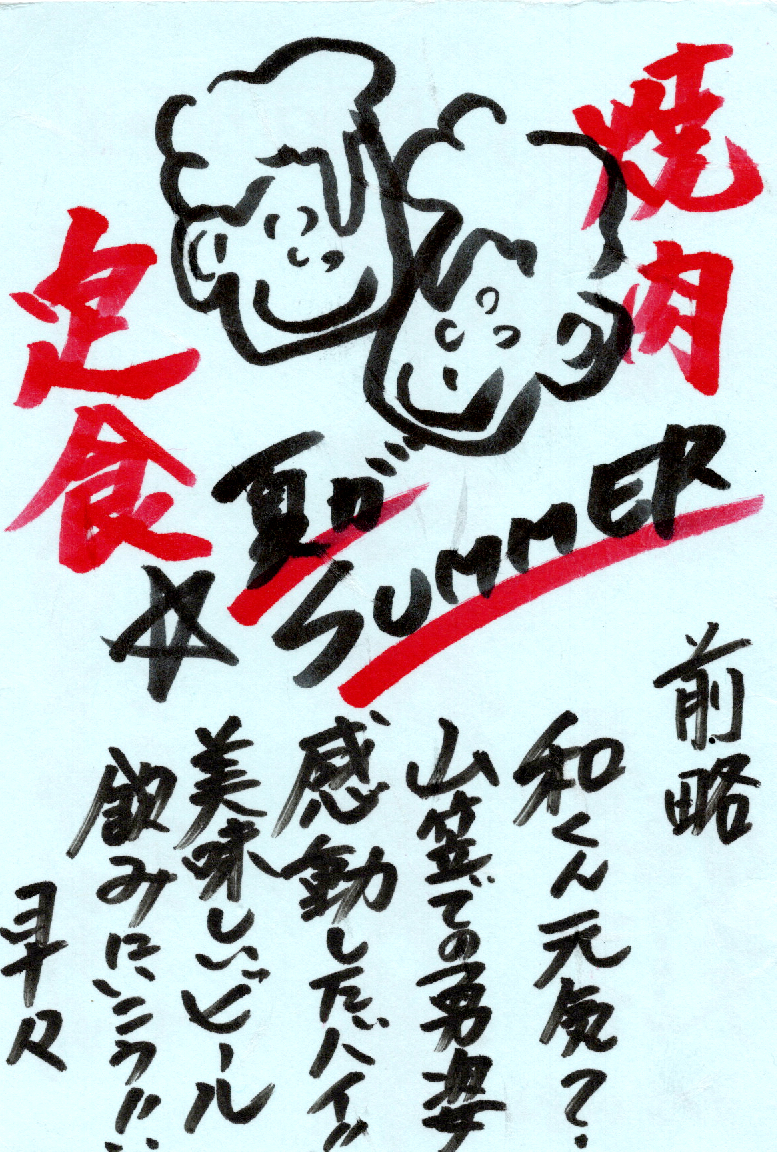 焼肉
定食
夏が
SUMMER
前略
和くん元気?
山笠での勇姿
感動したバイ!!
美味しいビール
飲みにいこう!!
早々